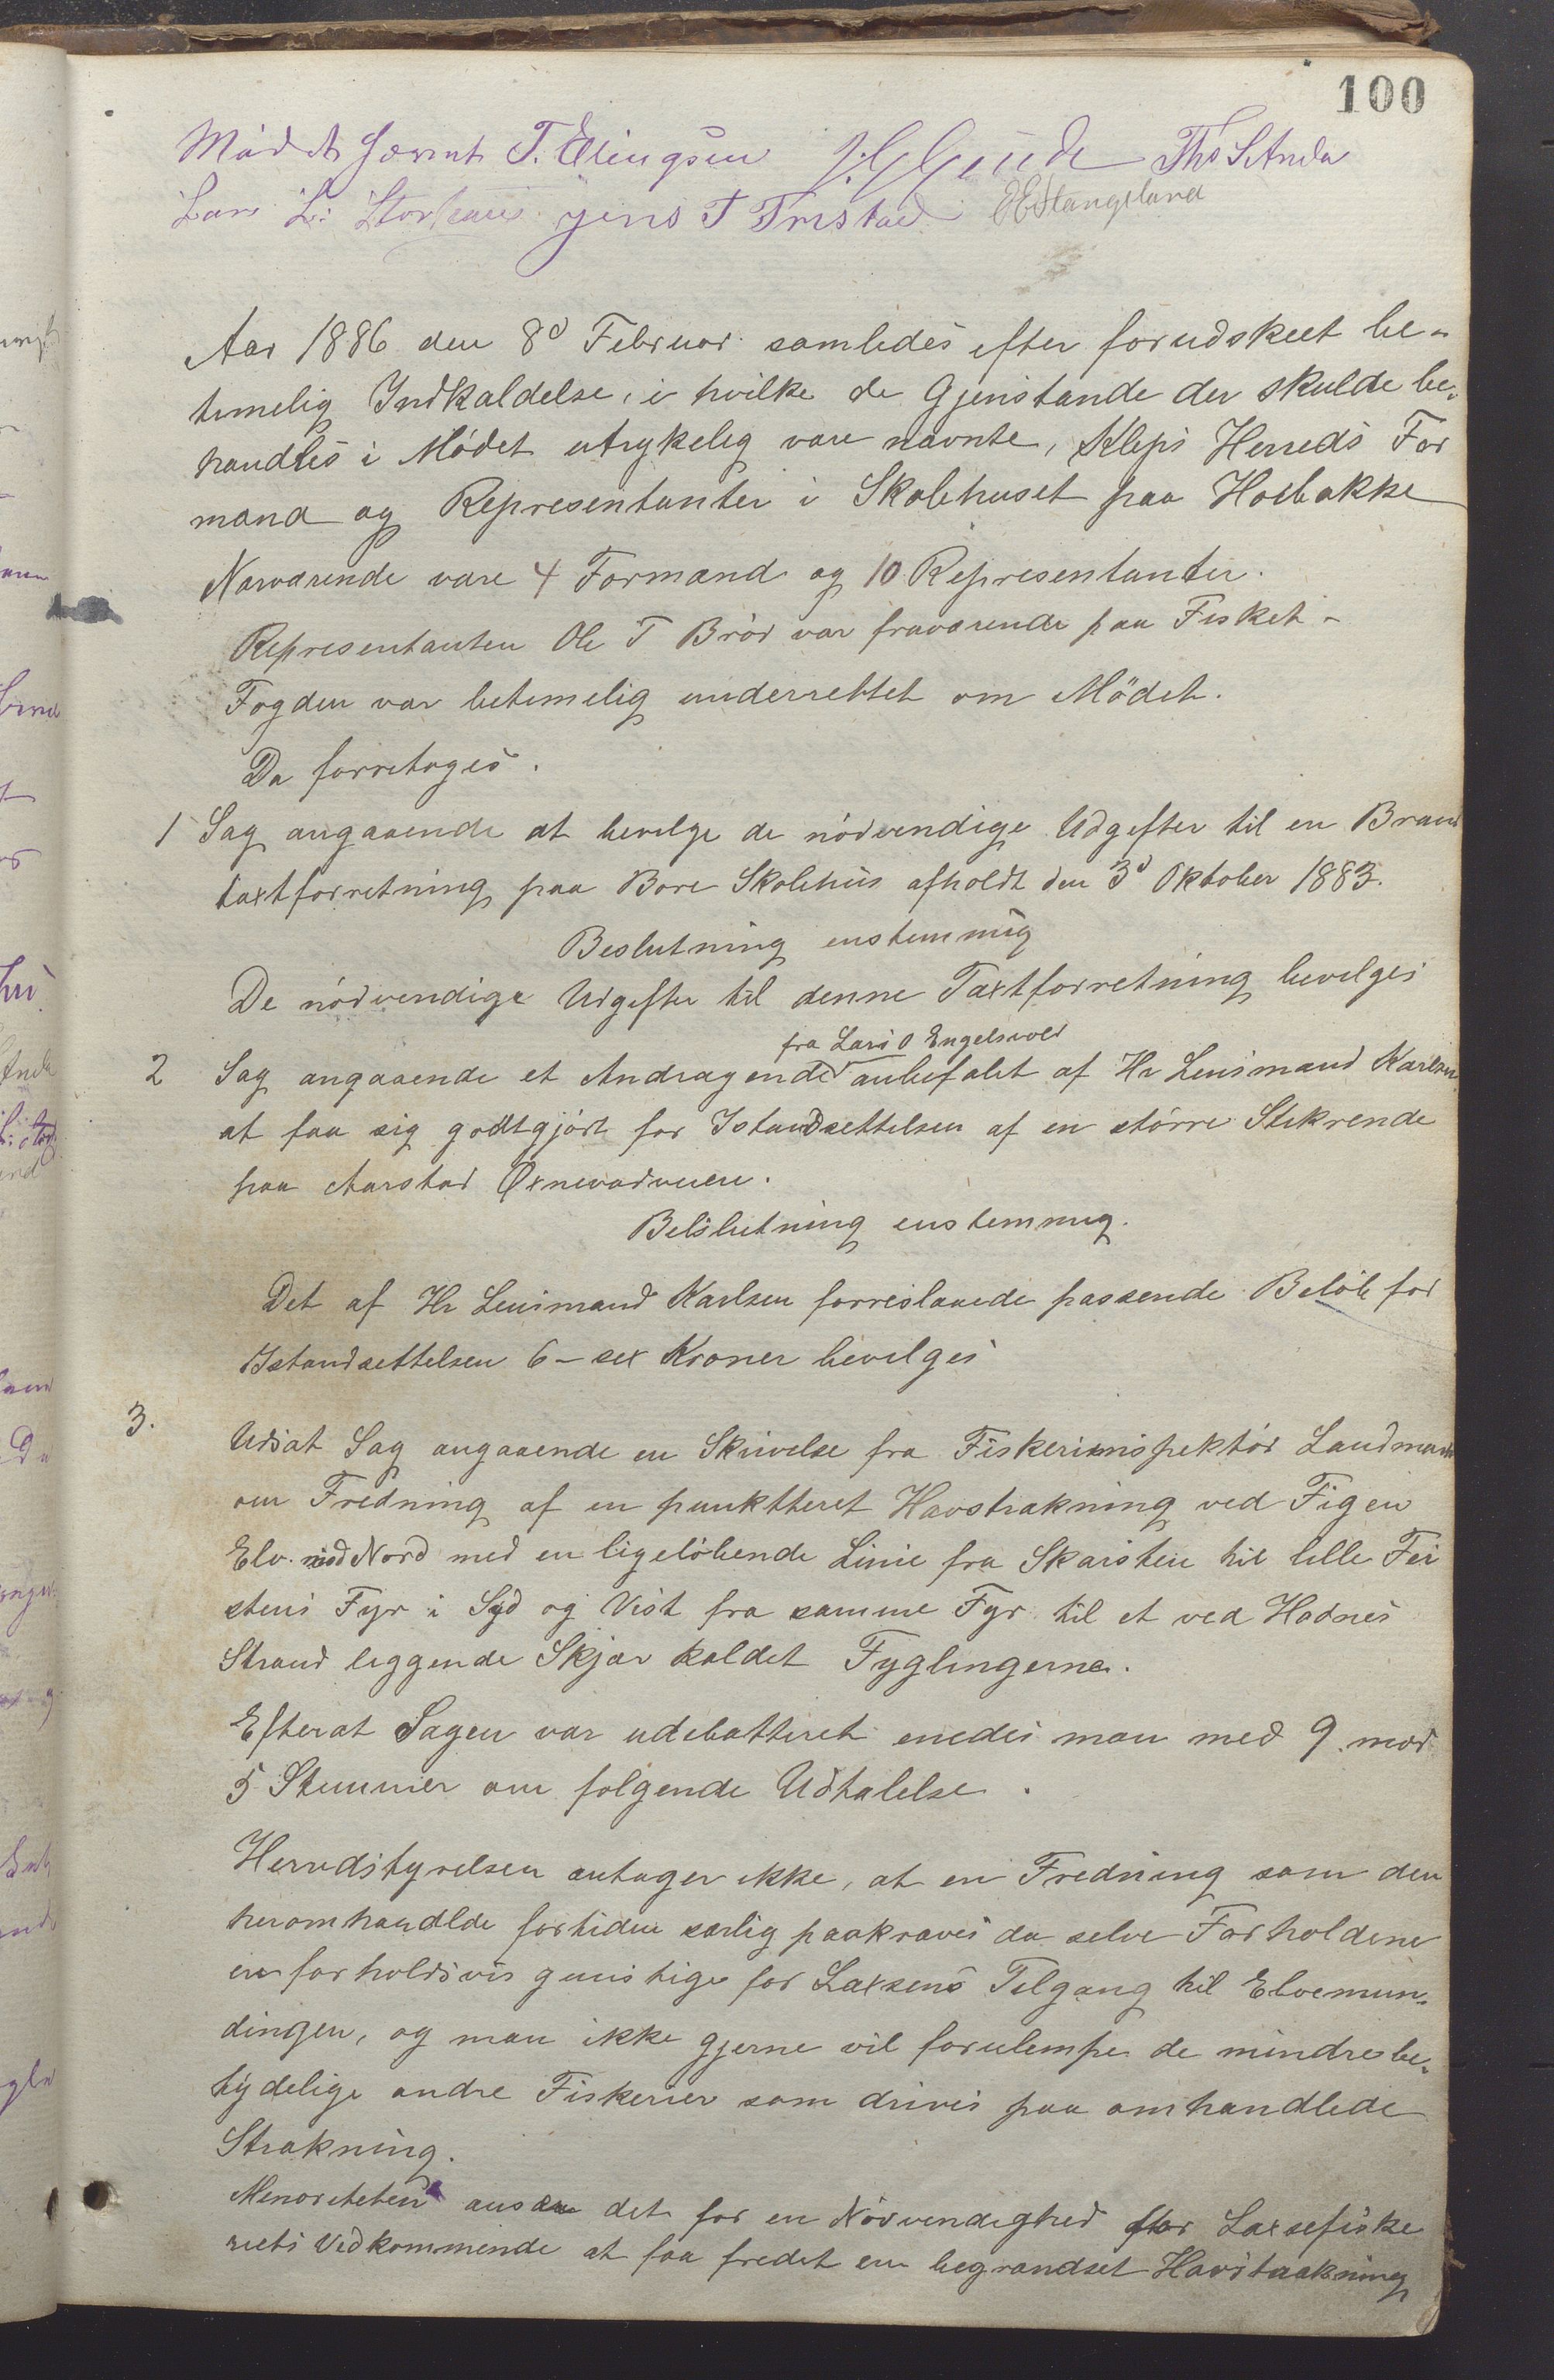 100
Mødet hævet T. Elingsen Ths S Anda
Lars L: Jens T Tristad OEStangeland
Aar 1886 den 8d Februar samledes efter forudskeet be-
timelig Indkaldelse, i hvilke de Gjenstande der skulde be-
handles i Mødet utrykelig vare nævnte, Kleps Herreds For
mænd og Representanter i Skolehuset paa Hoebakke
Nærværende vare 4 Formænd og 10 Representanter.
Representanten Ole T Brød var fraværende paa Fisket -
Fogden var betimelig underrettet om Mødet.
Da forretoges.
1 Sag angaaende at bevilge de nødvendige Udgifter til en Brand
taxtforretning paa Bore Skolehus afholdt den 3d Oktober 1883.
Beslutning enstemmig
De nødvendige Udgifter til denne Taxtforretning bevilges
fra Lars O Engelsvold
2 Sag angaaende et Andragende anbefalet af Hr Lensmand Karlsen
at faa sig godtgjort for Istandsettelsen af en større Stikrende
paa Aarstad Øxnevadveien.
Belslutning enstemmig.
Det af Hr Lensmand Karlsen forreslaaede passende Beløb for
Istandsettelsen 6 - sex Kroner bevilges
3. Udsat Sag angaaende en Skrivelse fra Fiskeriinspektør Landmark
om Fredning af en punktteret Havstrækning ved Figen
Elv. mod Nord med en ligeløbende Linie fra Skarsten til lille Fei
stens Fyr i Syd og Vest fra samme Fyr til et ved Hodnes
Strand liggende Skjær kaldet Fyglingerne.
Efterat Sagen var udebatteret enedes man med 9 mod
5 Stemmer om følgende Udtalelse.
Herredstyrelsen antager ikke, at en Fredning som den
heromhandlde fortiden særlig paakræves da selve Forholdene
er forholdsvis gunstige for Laxsens Tilgang til Elvemun-
dingen, og man ikke gjerne vil forulempe de mindre be-
tydelige andre Fiskerier som drives paa omhandlede
Strækning.
Menoriteten ansaa det for en Nødvendighed for Laxsefiske
riets Vedkommende at faa fredet en begrændset Havstrækning